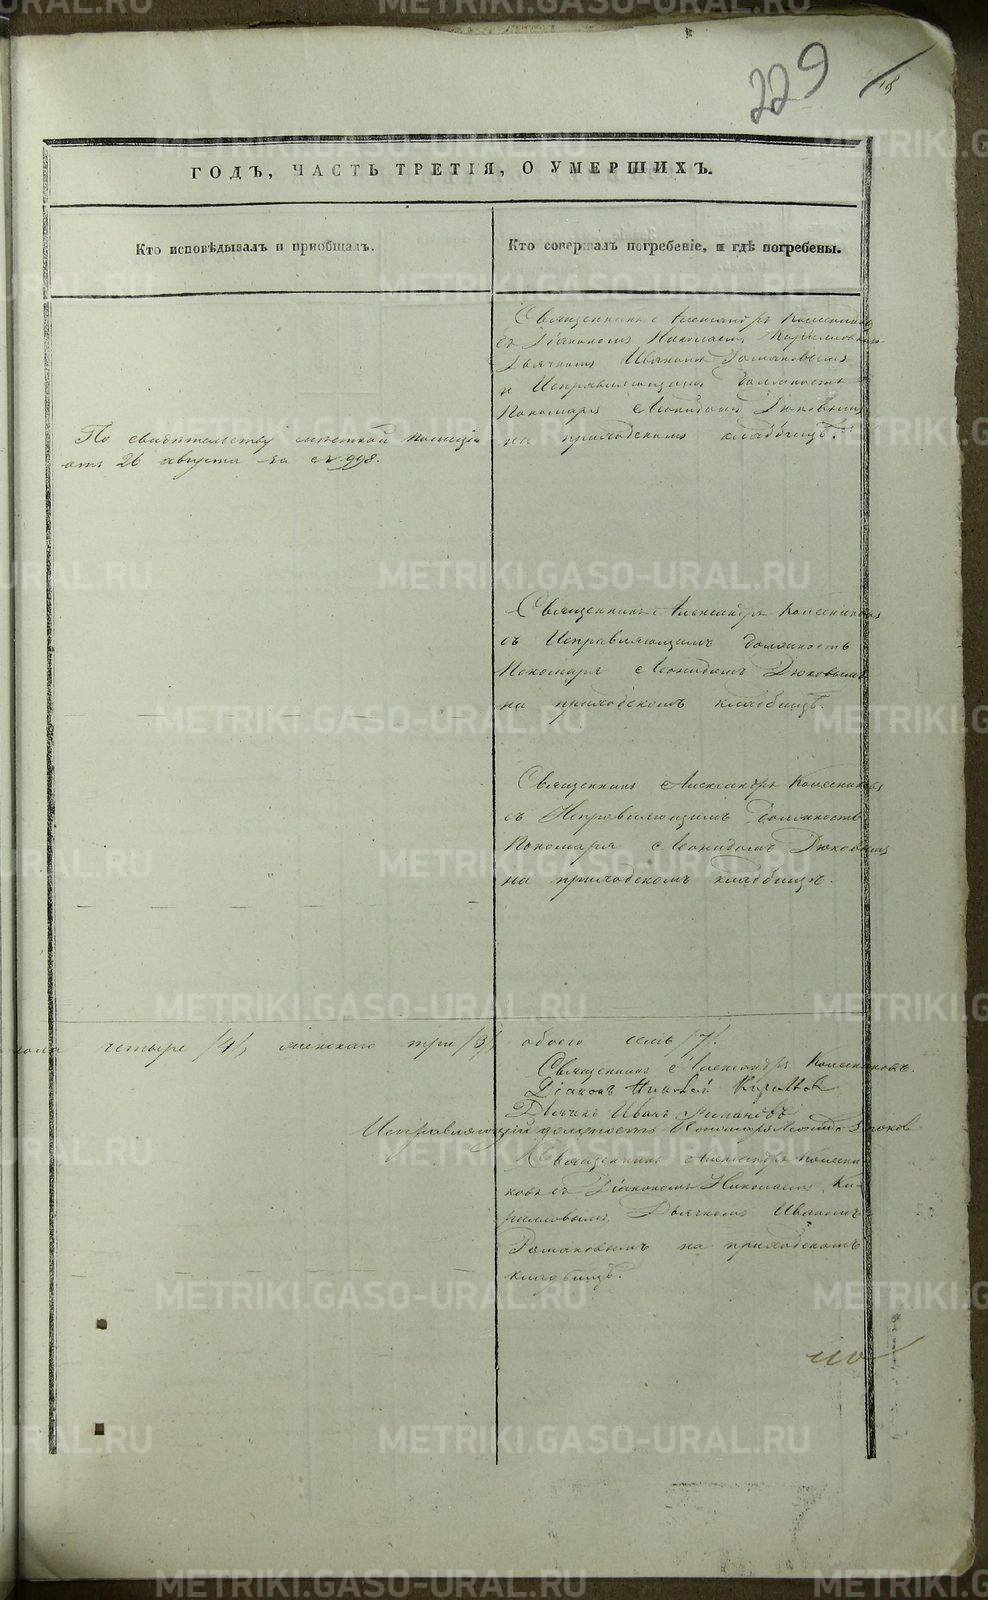 229
18
ГОДЪ, ЧАСТЬ ТРЕТІЯ, О УМЕРШИХЪ.
Кто исповѣдывалъ и приобщалъ.
Кто совершалъ погребеніе, и гдѣ погребены.
Священникъ Александръ Колесниковъ
съ Діакономъ Николаемъ Кирилловымъ
Дьячкомъ Иваномъ Романовымъ
и Исправляющимъ должность
Пономаря Леонидомъ Дюковымъ
на приходскомъ кладбищѣ.
По свидѣтельству полиціи
отъ 26 августа за № 998.
Священникъ Александръ Колесниковъ
съ Исправляющимъ должность
Пономаря Леонидомъ Дюковымъ
на приходскомъ кладбищѣ.
Священникъ Александръ Колесниковъ
съ Исправляющимъ должность
Пономаря Леонидомъ Дюковымъ
на приходскомъ кладбищѣ.
пола четыре /4/, женскаго три /3/, обоего семь /7/.
Священникъ Александръ Колесниковъ.
Діаконъ Николай Кириловъ
Дьячекъ Иванъ Романовъ
Исправляющій должность Пономаря Леонидъ Дюковъ
Священникъ Александръ Колесни-
ковъ съ Діакономъ Николаемъ Ки-
рилловымъ, Дьячкомъ Иваномъ
Романовымъ на приходскомъ
кладбищѣ.
METRIKI.GASO-URAL.RU